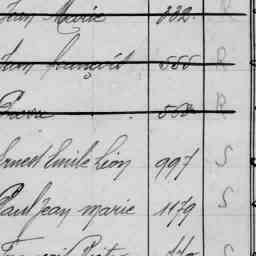 Jean Marie 332. R
Jean François 555 R
Pierre 553 R
Ernest Emile Léon 997 S
Paul Jean Marie 1179 S
François S